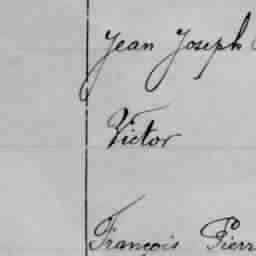 Jean Joseph
Victor
François Pierr